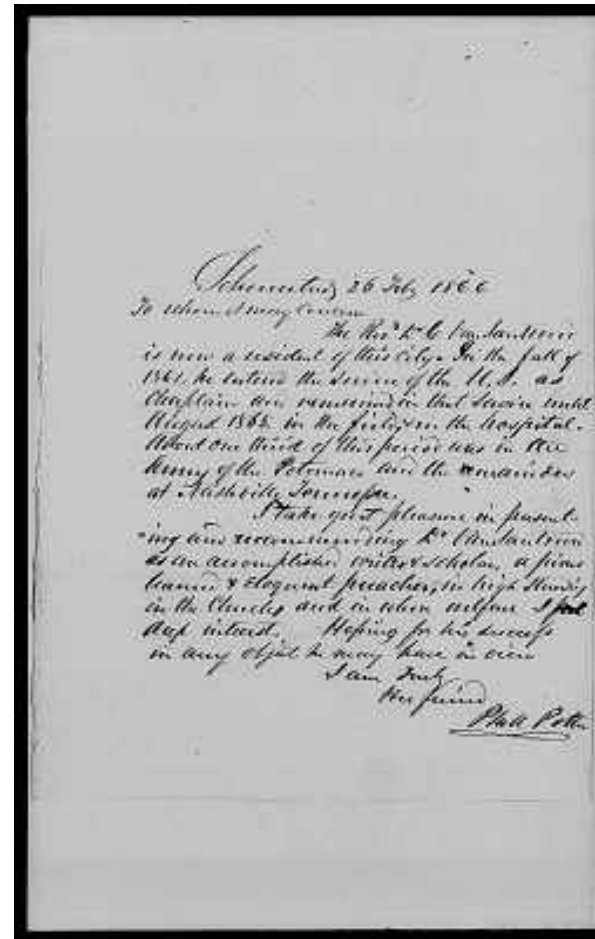 Schenectady 26 Feby 1866
To whom it may Concern
The Revd Dr C Van Santvoord
is now a resident of this City. In the fall of
1861 he entered the service of the U.S. as
Chaplain and remained in that service until
August 1865 in the field & in the hospital.
About one third of this period was in the
Army of the Potomac and the remainder
at Nashville Tennessee.
I take great pleasure in present-
ing and recommending Dr Van Santvoord
as an accomplished writer & scholar, a pious
learned & eloquent preacher, in high standing
in the Church, and in whose welfare I feel
deep interest. Hoping for his success
in any object he may have in view
I am truly
His friend
Platt Potter